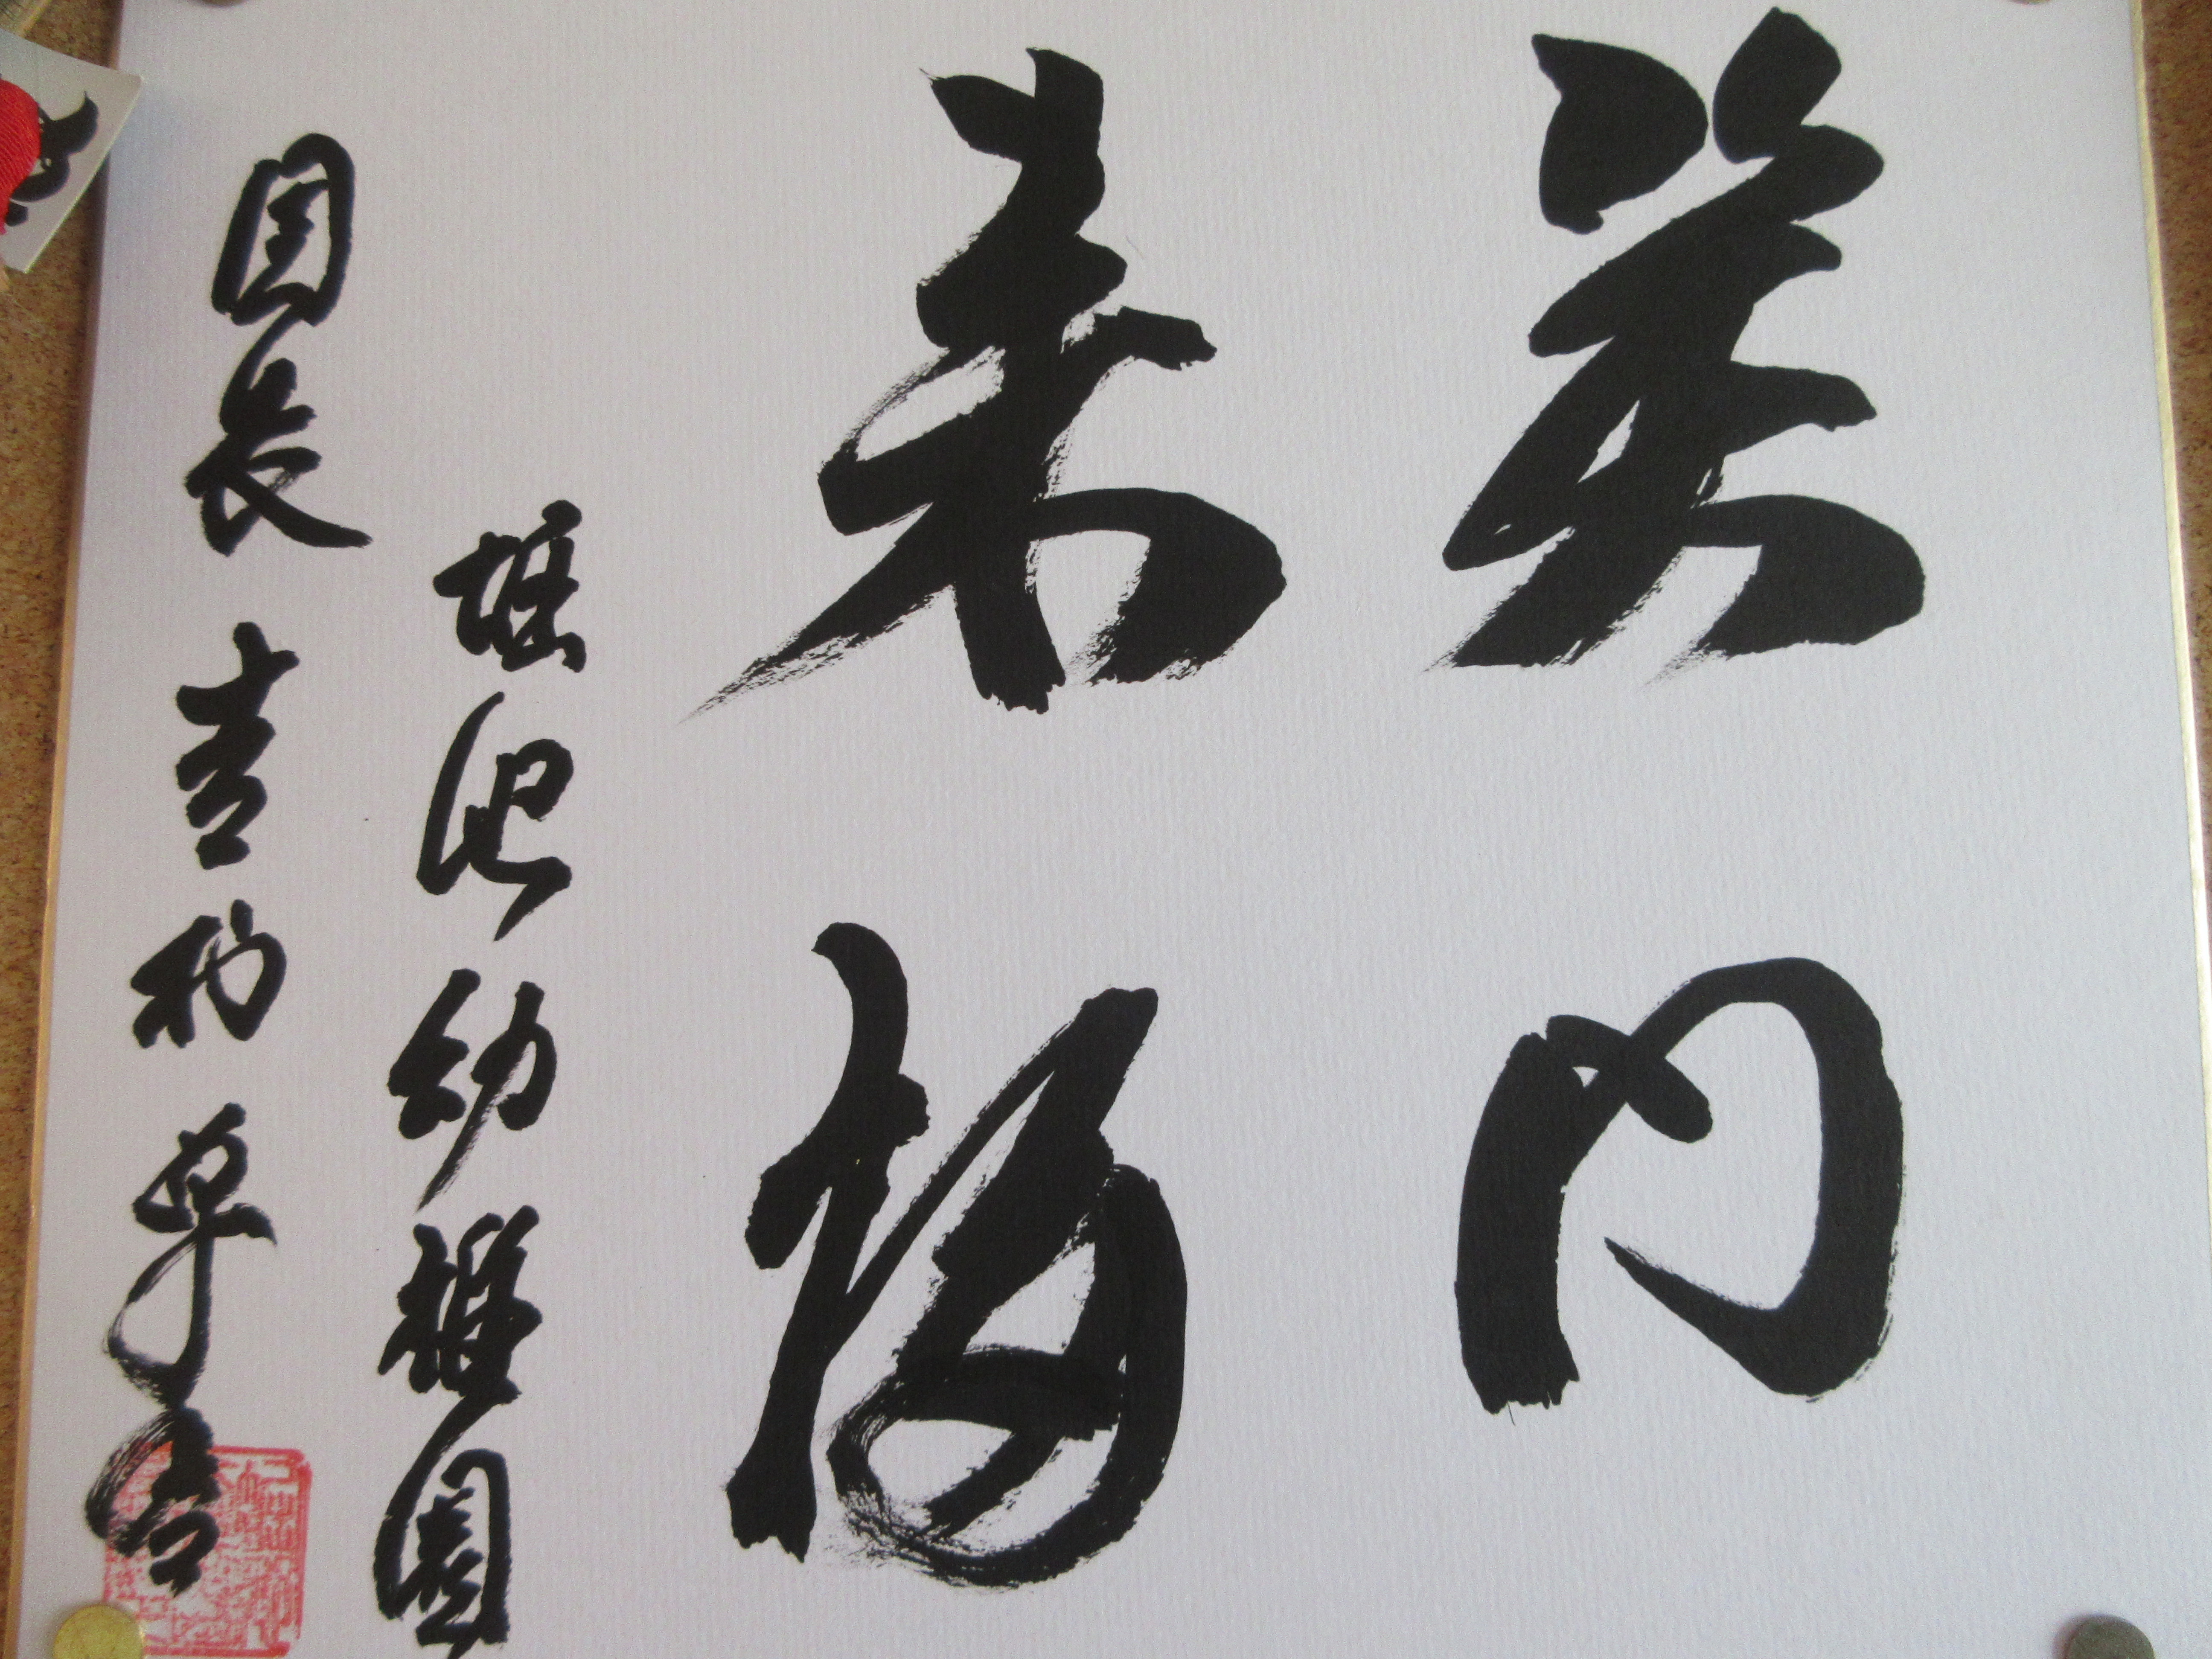 笑門
来福
堀池幼稚園
園長 吉村卓